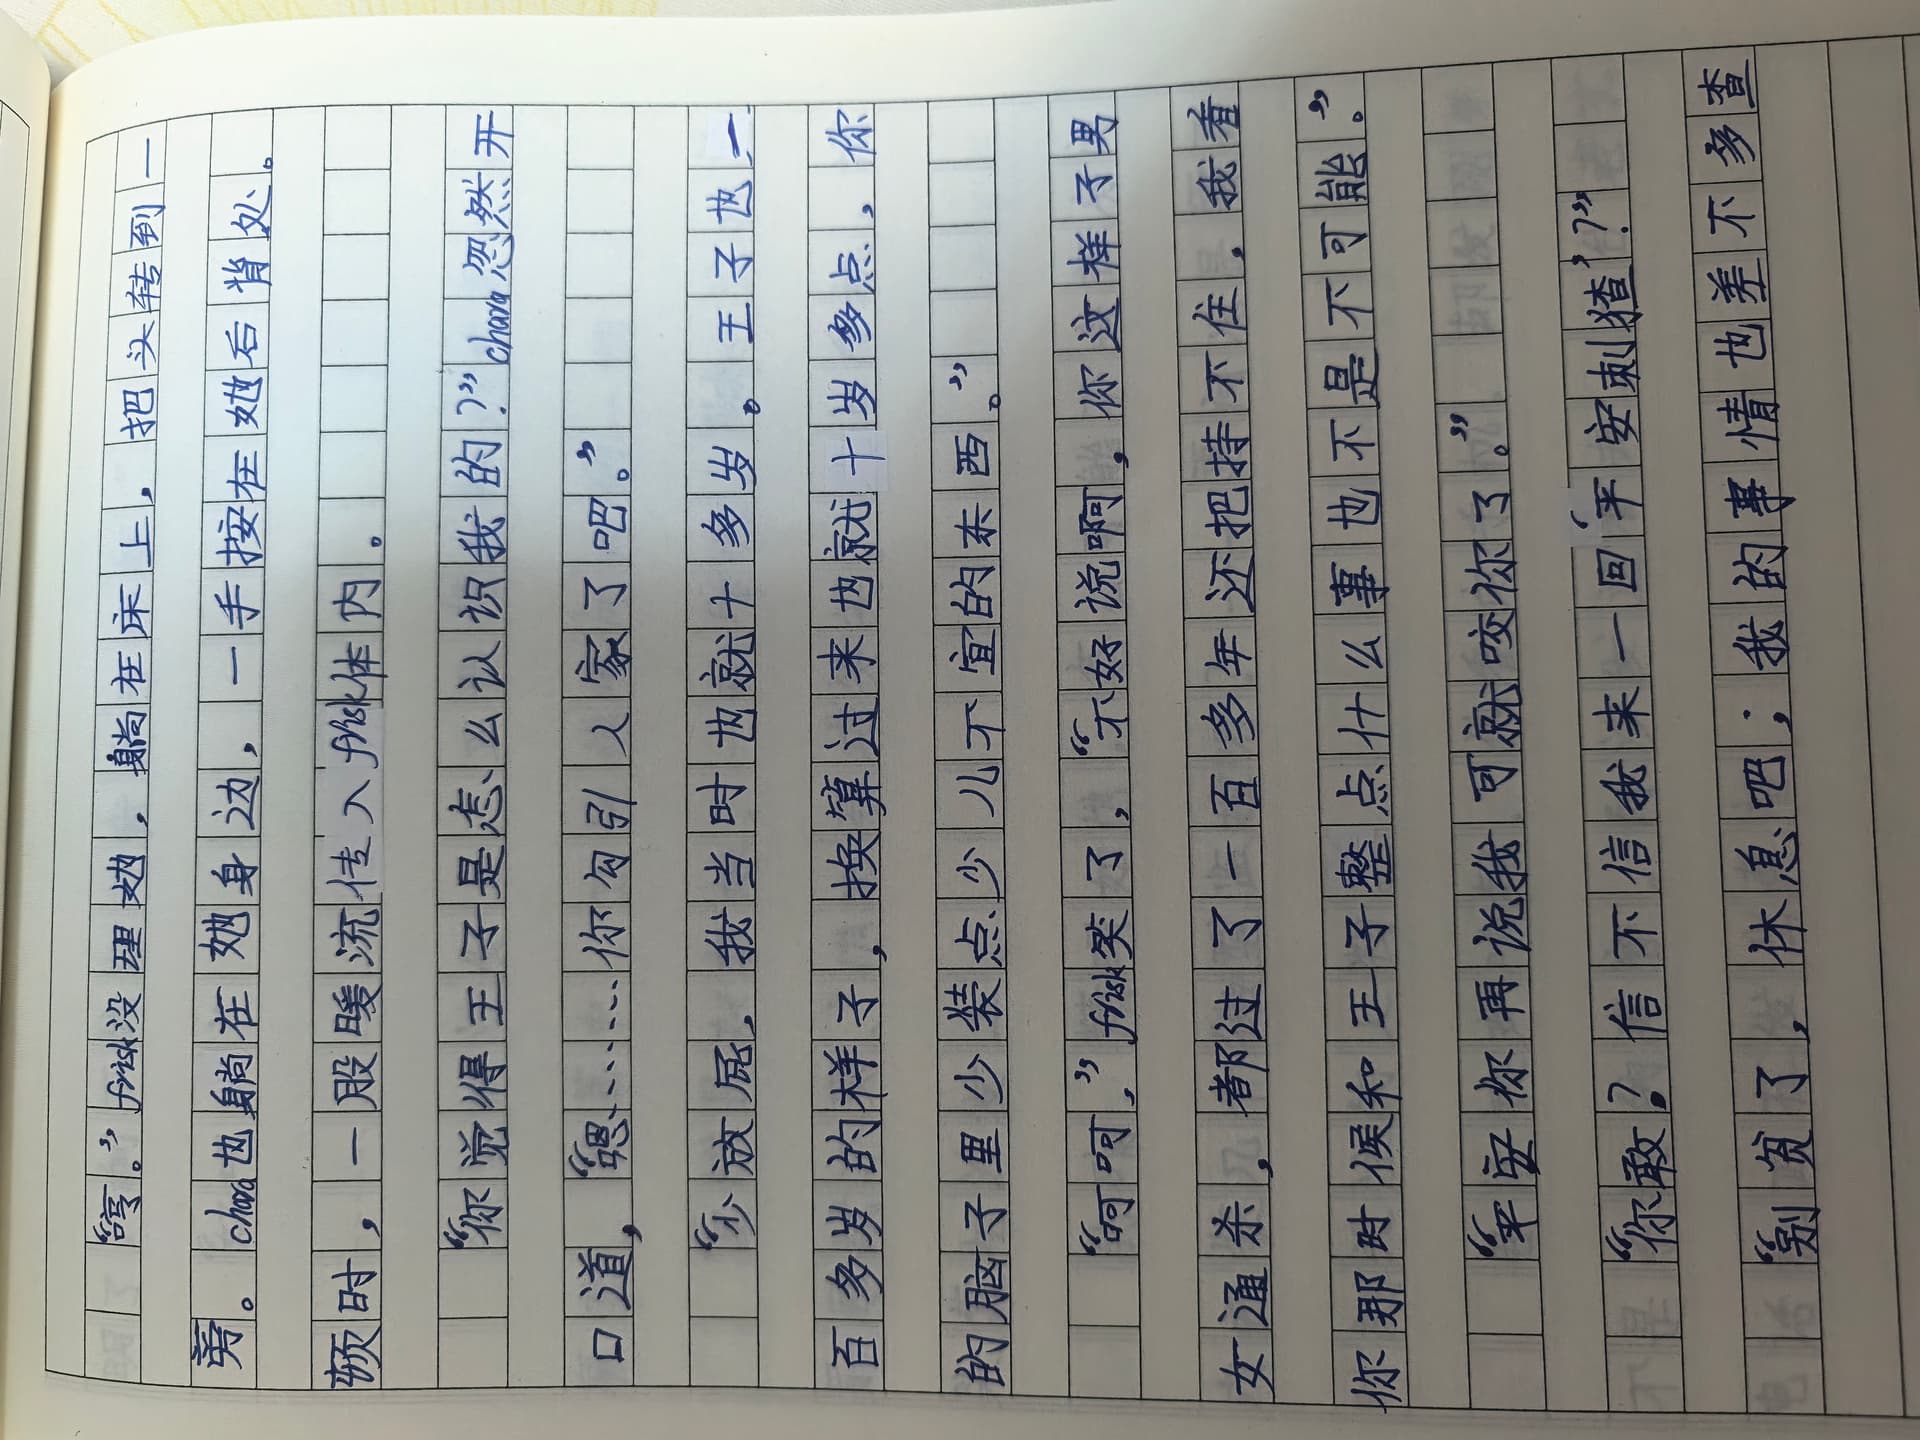 “哼。”frisk没理她，躺在床上，把头转到一
旁。chara也躺在她身边，一手按在她后背处。
顿时，一股暖流传入frisk体内。
“你觉得王子是怎么认识我的？”chara忽然开
口道，“嗯……你勾引人家了吧。”
“少放屁，我当时也就十多岁。王子也一
百多岁的样子，换算过来也就十岁多点，你
的脑子里少装点少儿不宜的东西。”
“呵呵，”frisk笑了，“不好说啊，你这样子男
女通杀，都过了一百多年还把持不住，我看
你那时候和王子整点什么事也不是不可能。”
“平安你再说我可就咬你了。”
“你敢？信不信我来一回‘平安刺猹’？”
“别贫了，休息吧；我的事情也差不多查